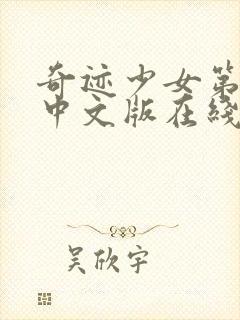 奇迹少女第
中文版在线
吴欣宇